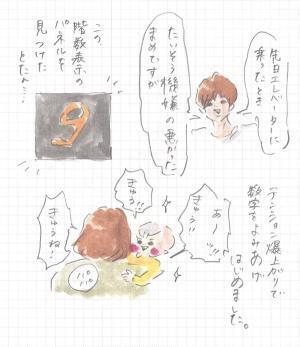 先日エレベーターに
乗ったとき
たいそう機嫌の悪かった
まめですが
この
階数表示の
パネルを
見つけた
とたん…
9
テンション爆上がりで
数字をよみあげ
はじめました。
あーッ!!
きゅう!
きゅう!!
きゅうね!
パパ